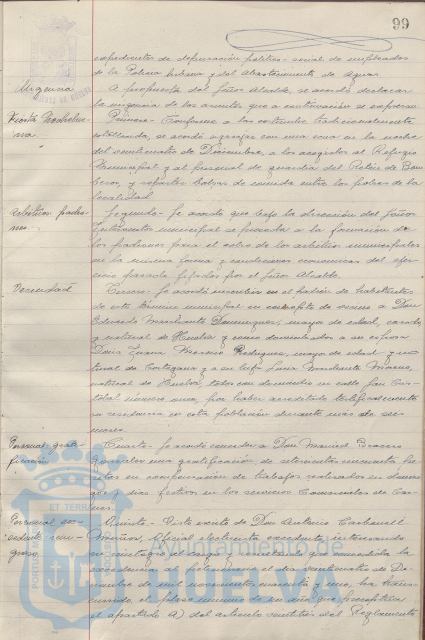 99
expedientes de depuración político-social de empleados
de la Policia urbana y del Abastecimiento de Aguas.
Urgencia
A propuesta del Señor Alcalde, se acordó declarar
la urgencia de los asuntos que a continuación se expresan
Primero - Conforme a la costumbre tradicionalmente
establecida, se acordó agasajar con una cena en la noche
del veinticuatro de Diciembre, a los acogidos al Refugio
Municipal y al personal de guardia del Retén de Bom-
beros, y repartir bolsas de comida entre los pobres de la
localidad.
Segundo - Se acordó que bajo la dirección del Señor
Interventor municipal se proceda a la formación de
los padrones para el cobro de los arbitrios municipales
en la misma forma y condiciones económicas del ejer-
cicio pasado fijadas por el Señor Alcalde.
Vecindad
Tercero - Se acordó inscribir en el padrón de habitantes
de este término municipal en concepto de vecino a Don
Eduardo Marchante Dominguez, mayor de edad, casado,
y natural de Huelva y como domiciliados a su esposa
Doña Juana Moreno Rodriguez, mayor de edad y na-
tural de Cortegana y a su hija Luisa Marchante Moreno,
natural de Huelva, todos con domicilio en calle San Cris-
tobal número uno, por haber acreditado
su residencia en esta población durante más de seis
meses.
Personal grati-
ficación
Cuarto - Se acordó conceder a Don Manuel Brocero
Gonzalez una gratificación de setecientas cincuenta pe-
setas en compensación de trabajos realizados en domin-
gos y dias festivos en los servicios Comunales de Car-
nes.
Personal ex-
cedente rein-
greso.
Quinto - Visto escrito de Don Antonio Carbonell
Miviños, Oficial electricista excedente, interesando
su reintegro al cargo y resultando que concedida la
excedencia al peticionario el dia veintiuno de Di-
ciembre de mil novecientos cuarenta y uno, ha trans-
currido el plazo minimo de un año que preceptúa
el apartado A) del articulo veintiseis del Reglamento
PORTUS
ET TERRAE
Ayuntamiento de
HUELVA